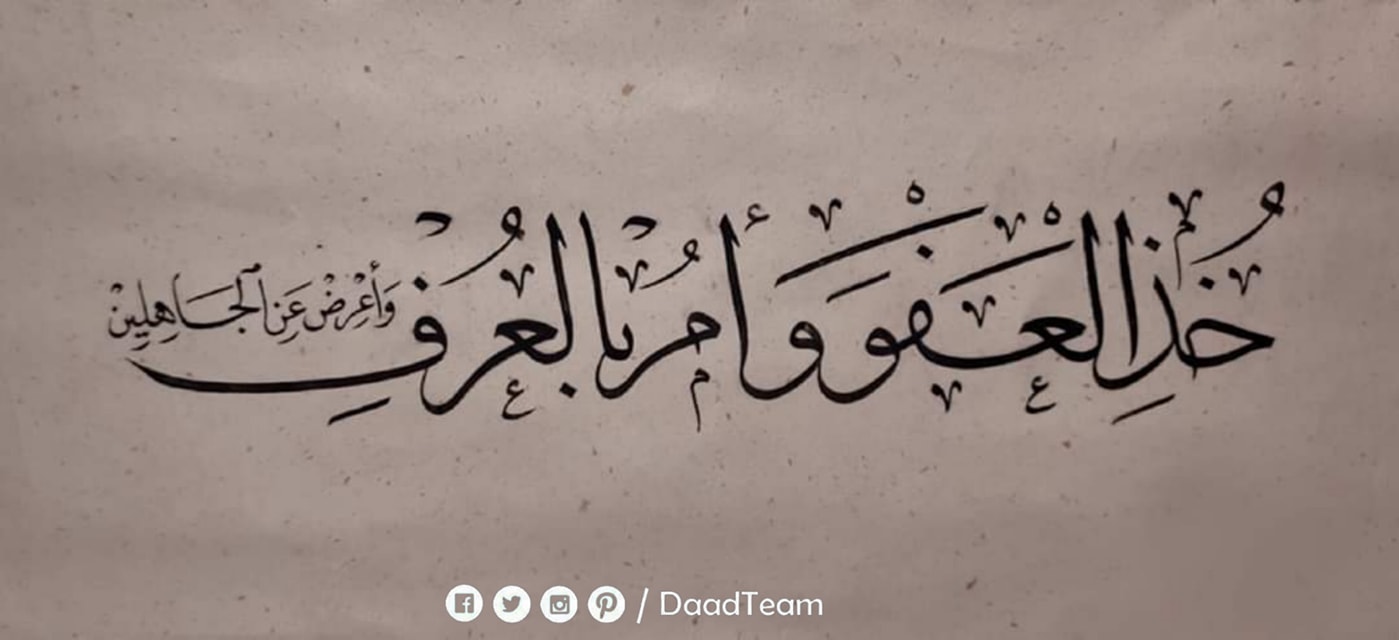 خُذِ الْعَفْوَ وَأْمُرْ بِالْعُرْفِ وَأَعْرِضْ عَنِ الْجَاهِلِينْ
/ DaadTeam